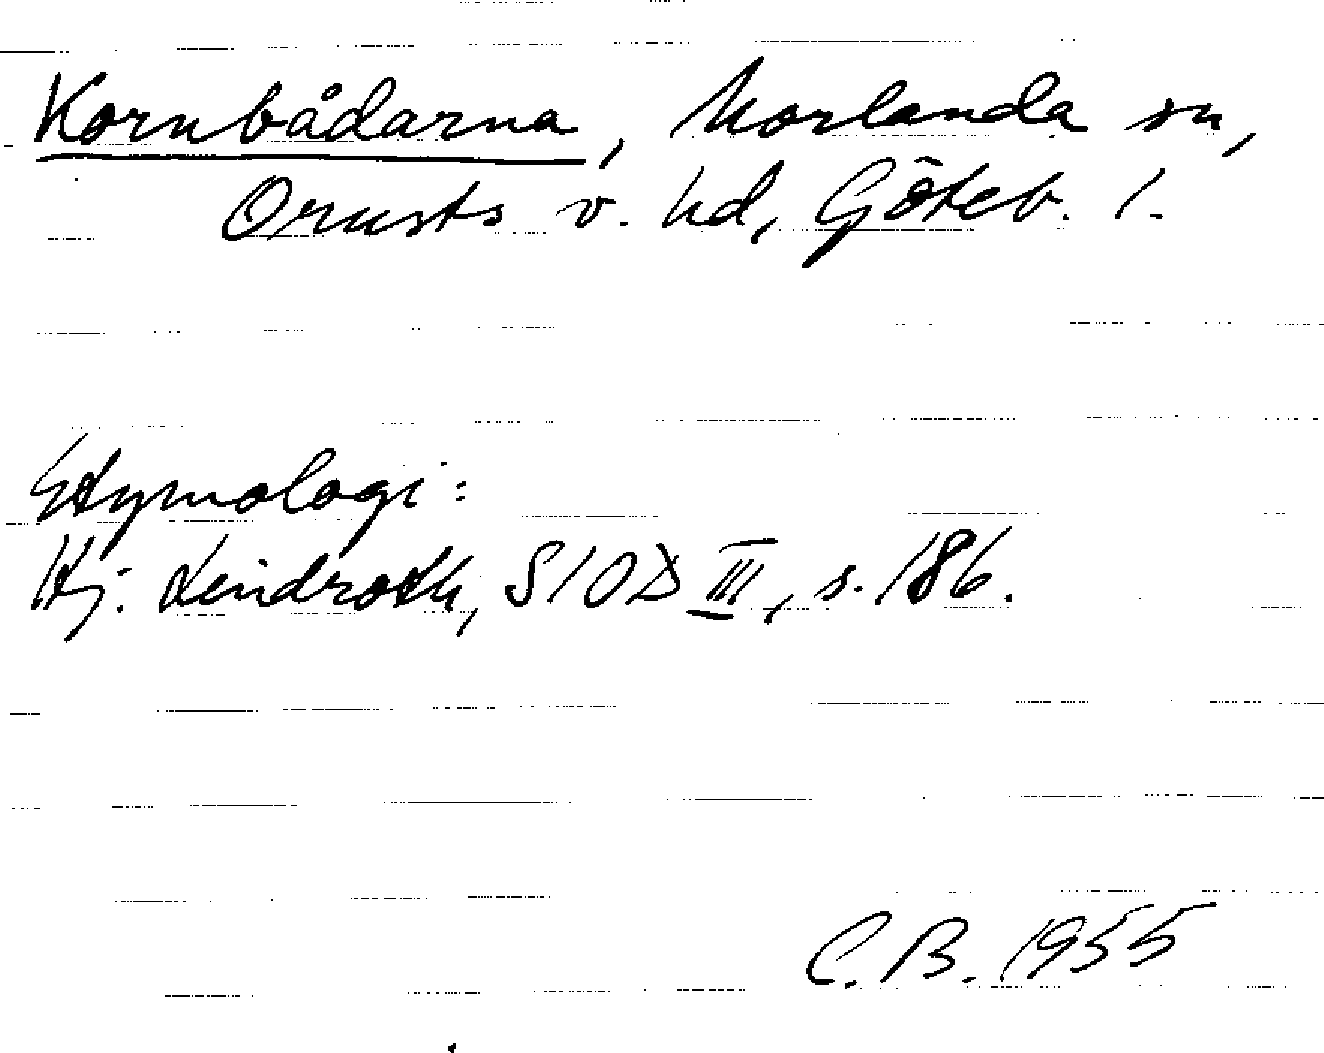 Kornbådarna, Morlanda sn,
Orusts v. hd, Göteb. l.
Etymologi:
Hj. Lindroth, SIOD III, s. 186.
C.B. 1955